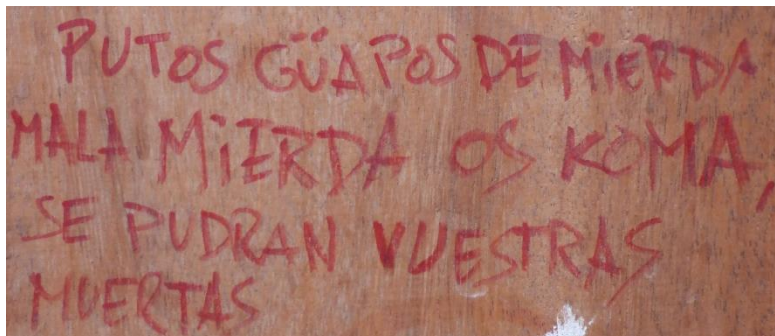 PUTOS GÜAPOS DE MiERDA
MALA MiERDA OS KOMA,
SE PUDRAN VUESTRAS
MUERTAS